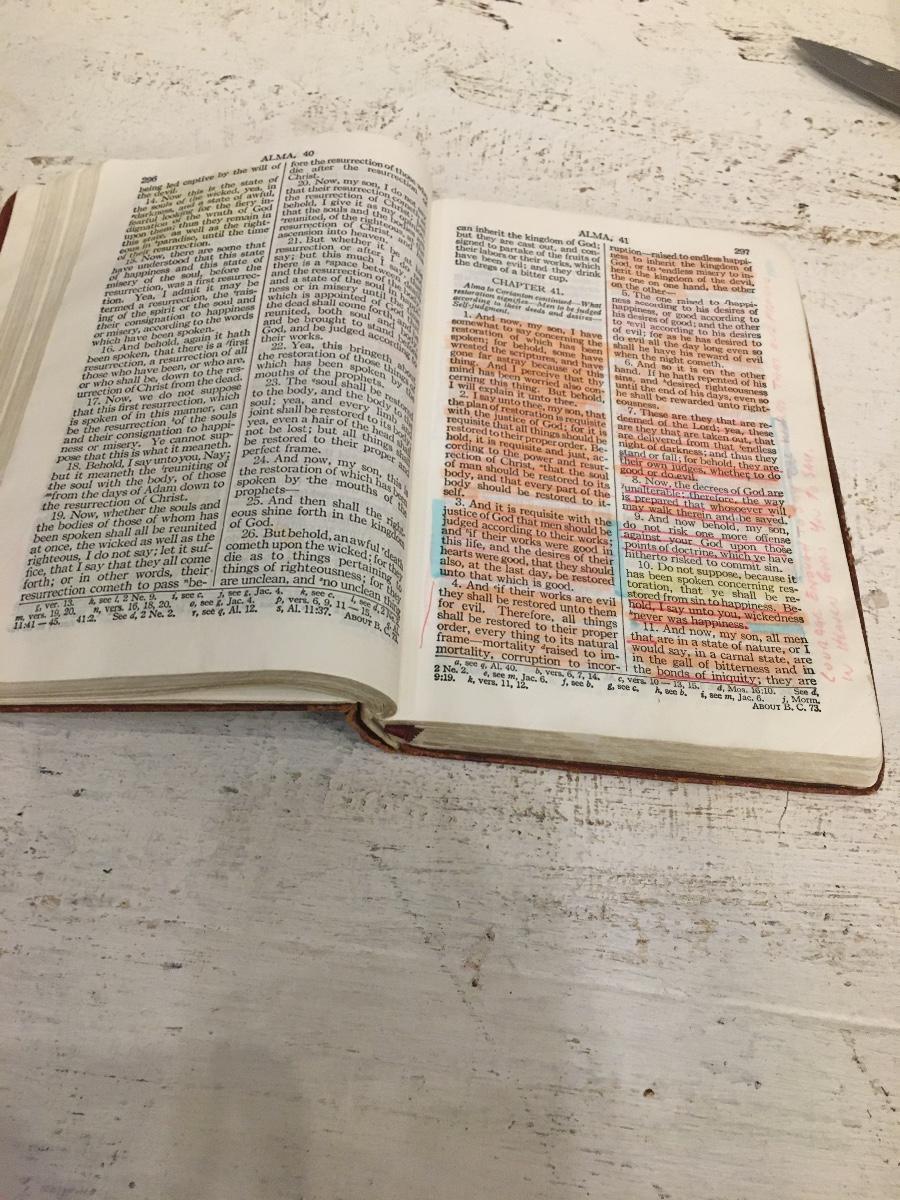 ALMA, 40
296
being led captive by the will of
the devil.
14. Now this is the state of
the souls of the wicked, yea, in
darkness, and a state of awful,
fearful looking for the fiery in-
dignation of the wrath of God
upon them; thus they remain in
this state, as well as the right-
eous in paradise, until the time
of their resurrection.
15. Now, there are some that
have understood that this state
of happiness and this state of
misery of the soul, before the
resurrection, was a first resurrec-
tion. Yea, I admit it may be
termed a resurrection, the rais-
ing of the spirit or the soul and
their consignation to happiness
or misery, according to the words
which have been spoken.
16. And behold, again it hath
been spoken, that there is a first
resurrection, a resurrection of all
those who have been, or who are,
or who shall be, down to the res-
urrection of Christ from the dead.
17. Now, we do not suppose
that this first resurrection, which
is spoken of in this manner, can
be the resurrection of the souls
and their consignation to happi-
ness or misery. Ye cannot sup-
pose that this is what it meaneth.
18. Behold, I say unto you, Nay;
but it meaneth the reuniting of
the soul with the body, of those
from the days of Adam down to
the resurrection of Christ.
19. Now, whether the souls and
the bodies of those of whom has
been spoken shall all be reunited
at once, the wicked as well as the
righteous, I do not say; let it suf-
fice, that I say that they all come
forth; or in other words, their
resurrection cometh to pass be-
fore the resurrection of those
die after the resurrection
Christ.
20. Now, my son, I do not
that their resurrection
the resurrection of Christ
behold, I give it as my
that the souls and the
reunited, of the righteous,
resurrection of Christ, and
ascension into heaven.
21. But whether it be at
resurrection or after, I do
say; but this much I say,
there is a space between
and the resurrection of the
and a state of the soul in
ness or in misery until the
which is appointed of God
the dead shall come forth,
reunited, both soul and
and be brought to stand
God, and be judged according
their works.
22. Yea, this bringeth
the restoration of those things
which has been spoken by
mouths of the prophets.
23. The soul shall be restored
to the body, and the body to the
soul; yea, and every limb
joint shall be restored to its body
yea, even a hair of the head
not be lost; but all things shall
be restored to their proper and
perfect frame.
24. And now, my son, this is
the restoration of which has been
spoken by the mouths of the
prophets—
25. And then shall the right-
eous shine forth in the kingdom
of God.
26. But behold, an awful death
cometh upon the wicked; for they
die as to things pertaining to
things of righteousness; for they
are unclean, and no unclean thing
l, ver. 13.
m, vers. 19, 20.
ABOUT B. C. 73.
ALMA, 41
297
can inherit the kingdom of God;
but they are cast out, and con-
signed to partake of the fruits of
their labors or their works, which
have been evil; and they drink
the dregs of a bitter cup.
CHAPTER 41.
Alma to Corianton continued—What
restoration signifies—Men to be judged
according to their deeds and desires—
Self-judgment.
1. And now, my son, I have
somewhat to say concerning the
restoration of which has been
spoken; for behold, some have
wrested the scriptures, and have
gone far astray because of this
thing. And I perceive that thy
mind has been worried also con-
cerning this thing. But behold,
I will explain it unto thee.
2. I say unto thee, my son, that
the plan of restoration is requisite
with the justice of God; for it is
requisite that all things should be
restored to their proper order. Be-
hold, it is requisite and just, ac-
cording to the power and resur-
rection of Christ, that the soul
of man should be restored to its
body, and that every part of the
body should be restored to it-
self.
3. And it is requisite with the
justice of God that men should be
judged according to their works;
and if their works were good in
this life, and the desires of their
hearts were good, that they should
also, at the last day, be restored
unto that which is good.
4. And if their works are evil
they shall be restored unto them
for evil. Therefore, all things
shall be restored to their proper
order, every thing to its natural
frame—mortality raised to im-
mortality, corruption to incor-
ruption—raised to endless happi-
ness to inherit the kingdom of
God, or to endless misery to in-
herit the kingdom of the devil,
the one on one hand, the other
on the other—
5. The one raised to happi-
ness according to his desires of
happiness, or good according to
his desires of good; and the other
to evil according to his desires
of evil; for as he has desired to
do evil all the day long even so
shall he have his reward of evil
when the night cometh.
6. And so it is on the other
hand. If he hath repented of his
sins, and desired righteousness
until the end of his days, even so
he shall be rewarded unto right-
eousness.
7. These are they that are re-
deemed of the Lord; yea, these
are they that are taken out, that
are delivered from that endless
night of darkness; and thus they
stand or fall; for behold, they are
their own judges, whether to do
good or do evil.
8. Now, the decrees of God are
unalterable; therefore, the way
is prepared that whosoever will
may walk therein and be saved.
9. And now behold, my son,
do not risk one more offense
against your God upon those
points of doctrine, which ye have
hitherto risked to commit sin.
10. Do not suppose, because it
has been spoken concerning res-
toration, that ye shall be re-
stored from sin to happiness. Be-
hold, I say unto you, wickedness
never was happiness.
11. And now, my son, all men
that are in a state of nature, or I
would say, in a carnal state, are
in the gall of bitterness and in
the bonds of iniquity; they are
a, see q, Al. 40. b, vers. 6, 7, 14. c, vers. 10—13, 15. d, Mos. 16:10. See d,
2 Ne. 2. e, see m, Jac. 6. f, see b. g, see c. h, see b. i, see m, Jac. 6. j, Morm.
9:19. k, vers. 11, 12.
ABOUT B. C. 73.